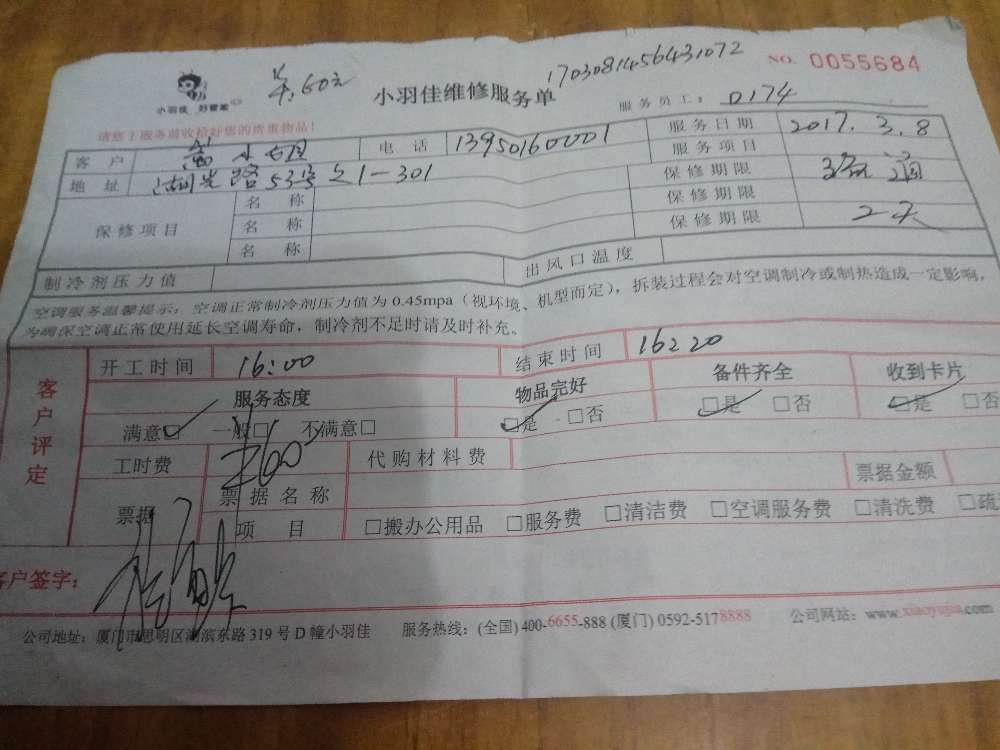 小羽佳 好管家
羊60元
小羽佳维修服务单
1703081456431072
NO. 0055684
服务员工: D174
请您于服务前收拾好您的贵重物品!
客户 小姐 电话 13950160001 服务日期 2017.3.8
地址 湖光路53号之1-301 服务项目 疏通
保修项目 名称 保修期限 2天
名称 保修期限
名称 保修期限
制冷剂压力值 出风口温度
空调服务温馨提示:空调正常制冷剂压力值为0.45mpa(视环境、机型而定),拆装过程会对空调制冷或制热造成一定影响,
为确保空调正常使用延长空调寿命,制冷剂不足时请及时补充。
客户评定
开工时间 16:00 结束时间 16:20
服务态度 物品完好 备件齐全 收到卡片
满意☑ 一般□ 不满意□ ☑是 □否 ☑是 □否 ☑是 □否
工时费 羊60 代购材料费
票据 票据名称 票据金额
项目 □搬办公用品 □服务费 □清洁费 □空调服务费 □清洗费 □疏
客户签字:
公司地址:厦门市思明区湖滨东路319号D幢小羽佳 服务热线:(全国)400-6655-888 (厦门)0592-5178888 公司网站:www.xiaoyujia.com